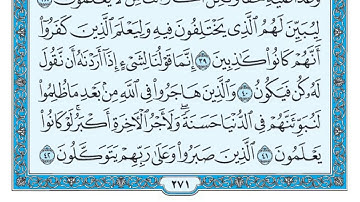 لِيُبَيِّنَ لَهُمُ ٱلَّذِى يَخْتَلِفُونَ فِيهِ وَلِيَعْلَمَ ٱلَّذِينَ كَفَرُوٓا۟
أَنَّهُمْ كَانُوا۟ كَٰذِبِينَ ٣٩ إِنَّمَا قَوْلُنَا لِشَىْءٍ إِذَآ أَرَدْنَٰهُ أَن نَّقُولَ
لَهُۥ كُن فَيَكُونُ ٤٠ وَٱلَّذِينَ هَاجَرُوا۟ فِى ٱللَّهِ مِنۢ بَعْدِ مَا ظُلِمُوا۟
لَنُبَوِّئَنَّهُمْ فِى ٱلدُّنْيَا حَسَنَةً وَلَأَجْرُ ٱلْءَاخِرَةِ أَكْبَرُ لَوْ كَانُوا۟
يَعْلَمُونَ ٤١ ٱلَّذِينَ صَبَرُوا۟ وَعَلَىٰ رَبِّهِمْ يَتَوَكَّلُونَ ٤٢
٢٧١